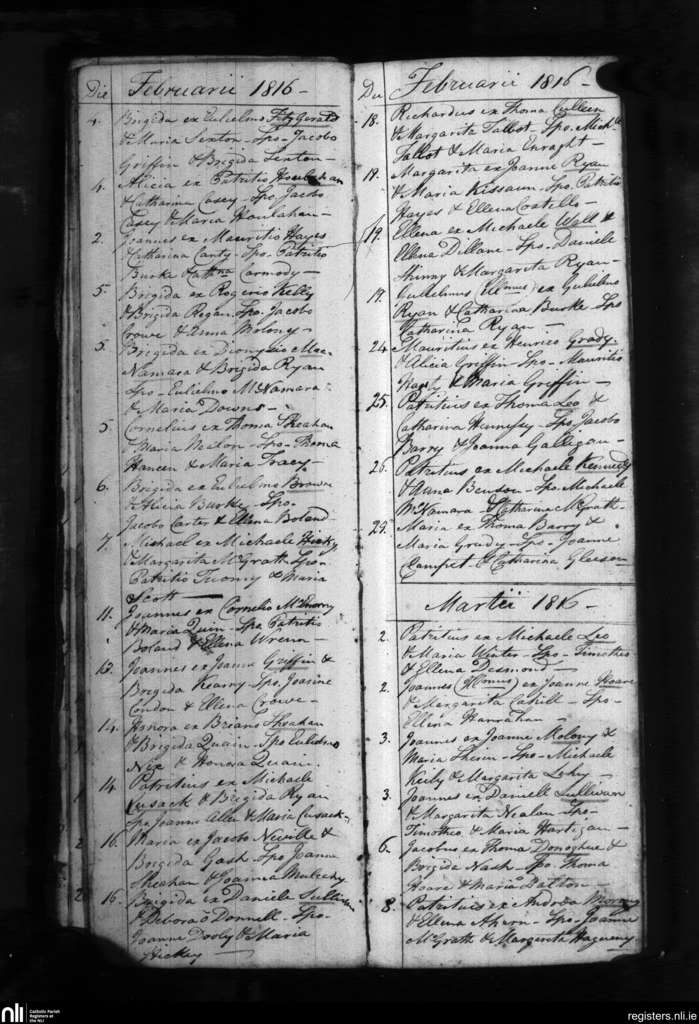 Die Februarii 1816 -
4. Brigida ex Eulielmo FitzGerald
& Maria Sexton - Spo - Jacobo
Griffin & Brigida Sexton -
4. Alicia ex Patritio Houlahan
& Catharina Casey - Spo Jacobo
Casey & Maria Houlahan -
2. Joannes ex Mauritio Hayes
& Catharina Canty - Spo - Patritio
Burke & Carmody -
5 Brigida ex Rogerio Kelly
& Brigida Regan - Spo - Jacobo
Crowe & Anna Molony -
5. Brigida ex Dionysio Mac
Namara & Brigida Ryan
Spo - Eulielmo McNamara
& Maria Downs -
5. Cornelius ex Thoma Sheahan
& Maria - Spo - Thoma
& Maria Tracy -
6. Brigida ex Eulielmo Brown
& Alicia Burke - Spo -
Jacobo Carter & Ellena Boland
7. Michael ex Michaele Hicky
& Margarita McGrath Spo -
Patritio Twomy & Maria
Scott -
11. Joannes ex Cornelio
& Maria Quin - Spo Patritio
Boland & Ellena Wrenn -
13. Joannes ex Joanne Griffin &
Brigida Kearny - Spo. Joanne
Condon & Ellena Crowe -
14. Honora ex Briano Sheahan
& Brigida Quain - Spo Eulielmo
Nix & Honora Quan.
14 Patritius ex Michaele
Cusack & Brigida Ryan
Spo Joanne Allen & Maria Cusack -
16. Maria ex Jacobo Neville &
Brigida Gash Spo Joanne
Sheahan & Joanna Mulcahy
16. Brigida ex Daniele Sullivan
& Debora O Donnell - Spo -
Joanne Dooly & Maria
Hickey -
Die Februarii 1816 -
18. Richardus ex Thoma Culleen
& Margarita Talbot - Spo - Michle
Talbot & Maria Enraght -
19. Margarita ex Joanne Ryan
& Maria Kissaun - Spo - Patritio
Hayes & Ellena Costello -
19. Ellena ex Michaele Wall &
Ellena Dillane - Spo - Daniele
& Margarita Ryan -
19. Gulielmus ex Gulielmo
Ryan & Catharina Burke Spo
Catharina Ryan -
24 Mauritius ex Henrico Grady
& Alicia Griffin - Spo - Mauritio
& Maria Griffin -
25. Patritius ex Thoma Leo &
Catharina Hennessy - Spo Jacobo
Barry & Joanna Gallegan -
26. Patritius ex Michaele Kennedy
& Anna Benson - Spo. Michaele
McNamara & Catharina McGrath -
29. Maria ex Thoma Barry &
Maria Grady - Spo - Joanne
& Catharina Gleeson
Martii 1816 -
2. Patritius ex Michaele Leo
& Maria Winter - Spo - Timotheo
& Ellena Desmond -
2. Joannes ex Joanne Hoare
& Margarita Cahill - Spo -
Ellena Hanrahan -
3. Joannes ex Joanne Molony &
Maria - Spo - Michaele
Keily & Margarita Lahy -
3. Joannes ex Daniele Sullivan
& Margarita Nealon - Spo -
Timotheo & Maria Hartigan -
6. Jacobus ex Thoma Donoghue &
Brigida Nash - Spo - Thoma
Hoare & Maria Dalton -
8. Patritius ex Andrea
& Ellena Ahern - Spo - Joanne
McGrath & Margarita
nli Catholic Parish
Registers at
the NLI
registers.nli.ie